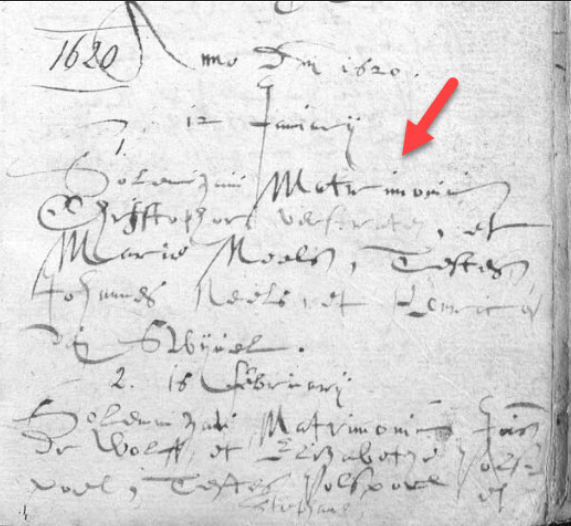 1620
Anno Dm 1620.
1. 12 Januarij
Solemnizaui Matrimonium
Christophori verstraten, et
Maria Moels, Testes
Johannes Neels, et Henric
de Swijuel.
2. 16 Februarij
Solemnizaui Matrimonium
de Wolff, et Elizabetha
poel, Testes
et
Stephane